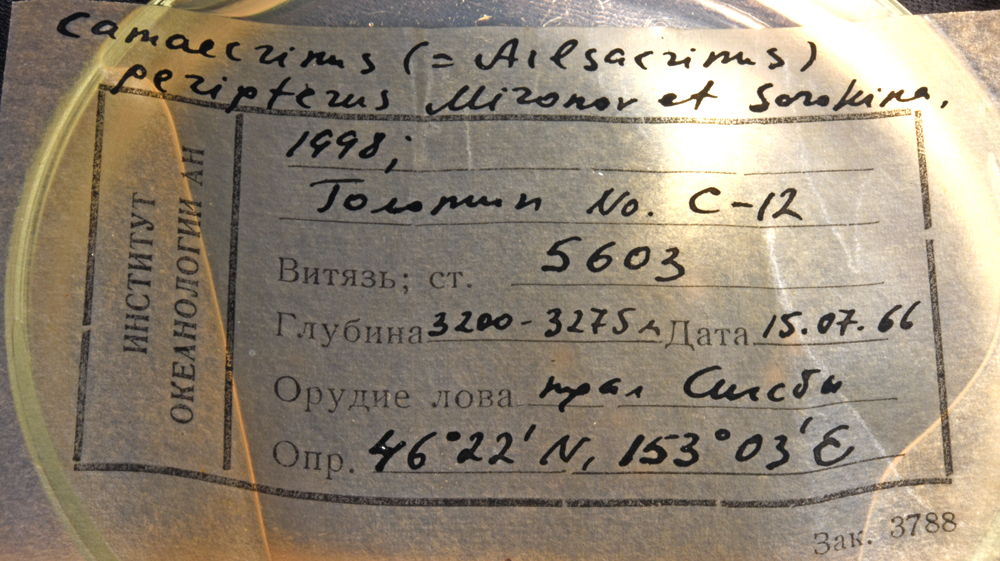 Camaecrinus (= Ailsacrinus)
peripterus Mironov et Sorokina,
1998;
Голотип No. C-12
Витязь; ст. 5603
Глубина 3200-3275 м Дата 15.07.66
Орудие лова трал Сигсби
Опр. 46°22' N, 153°03' E
ИНСТИТУТ
ОКЕАНОЛОГИИ АН
Зак. 3788